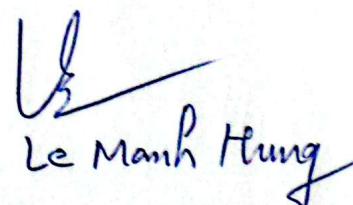 Le Manh Hung